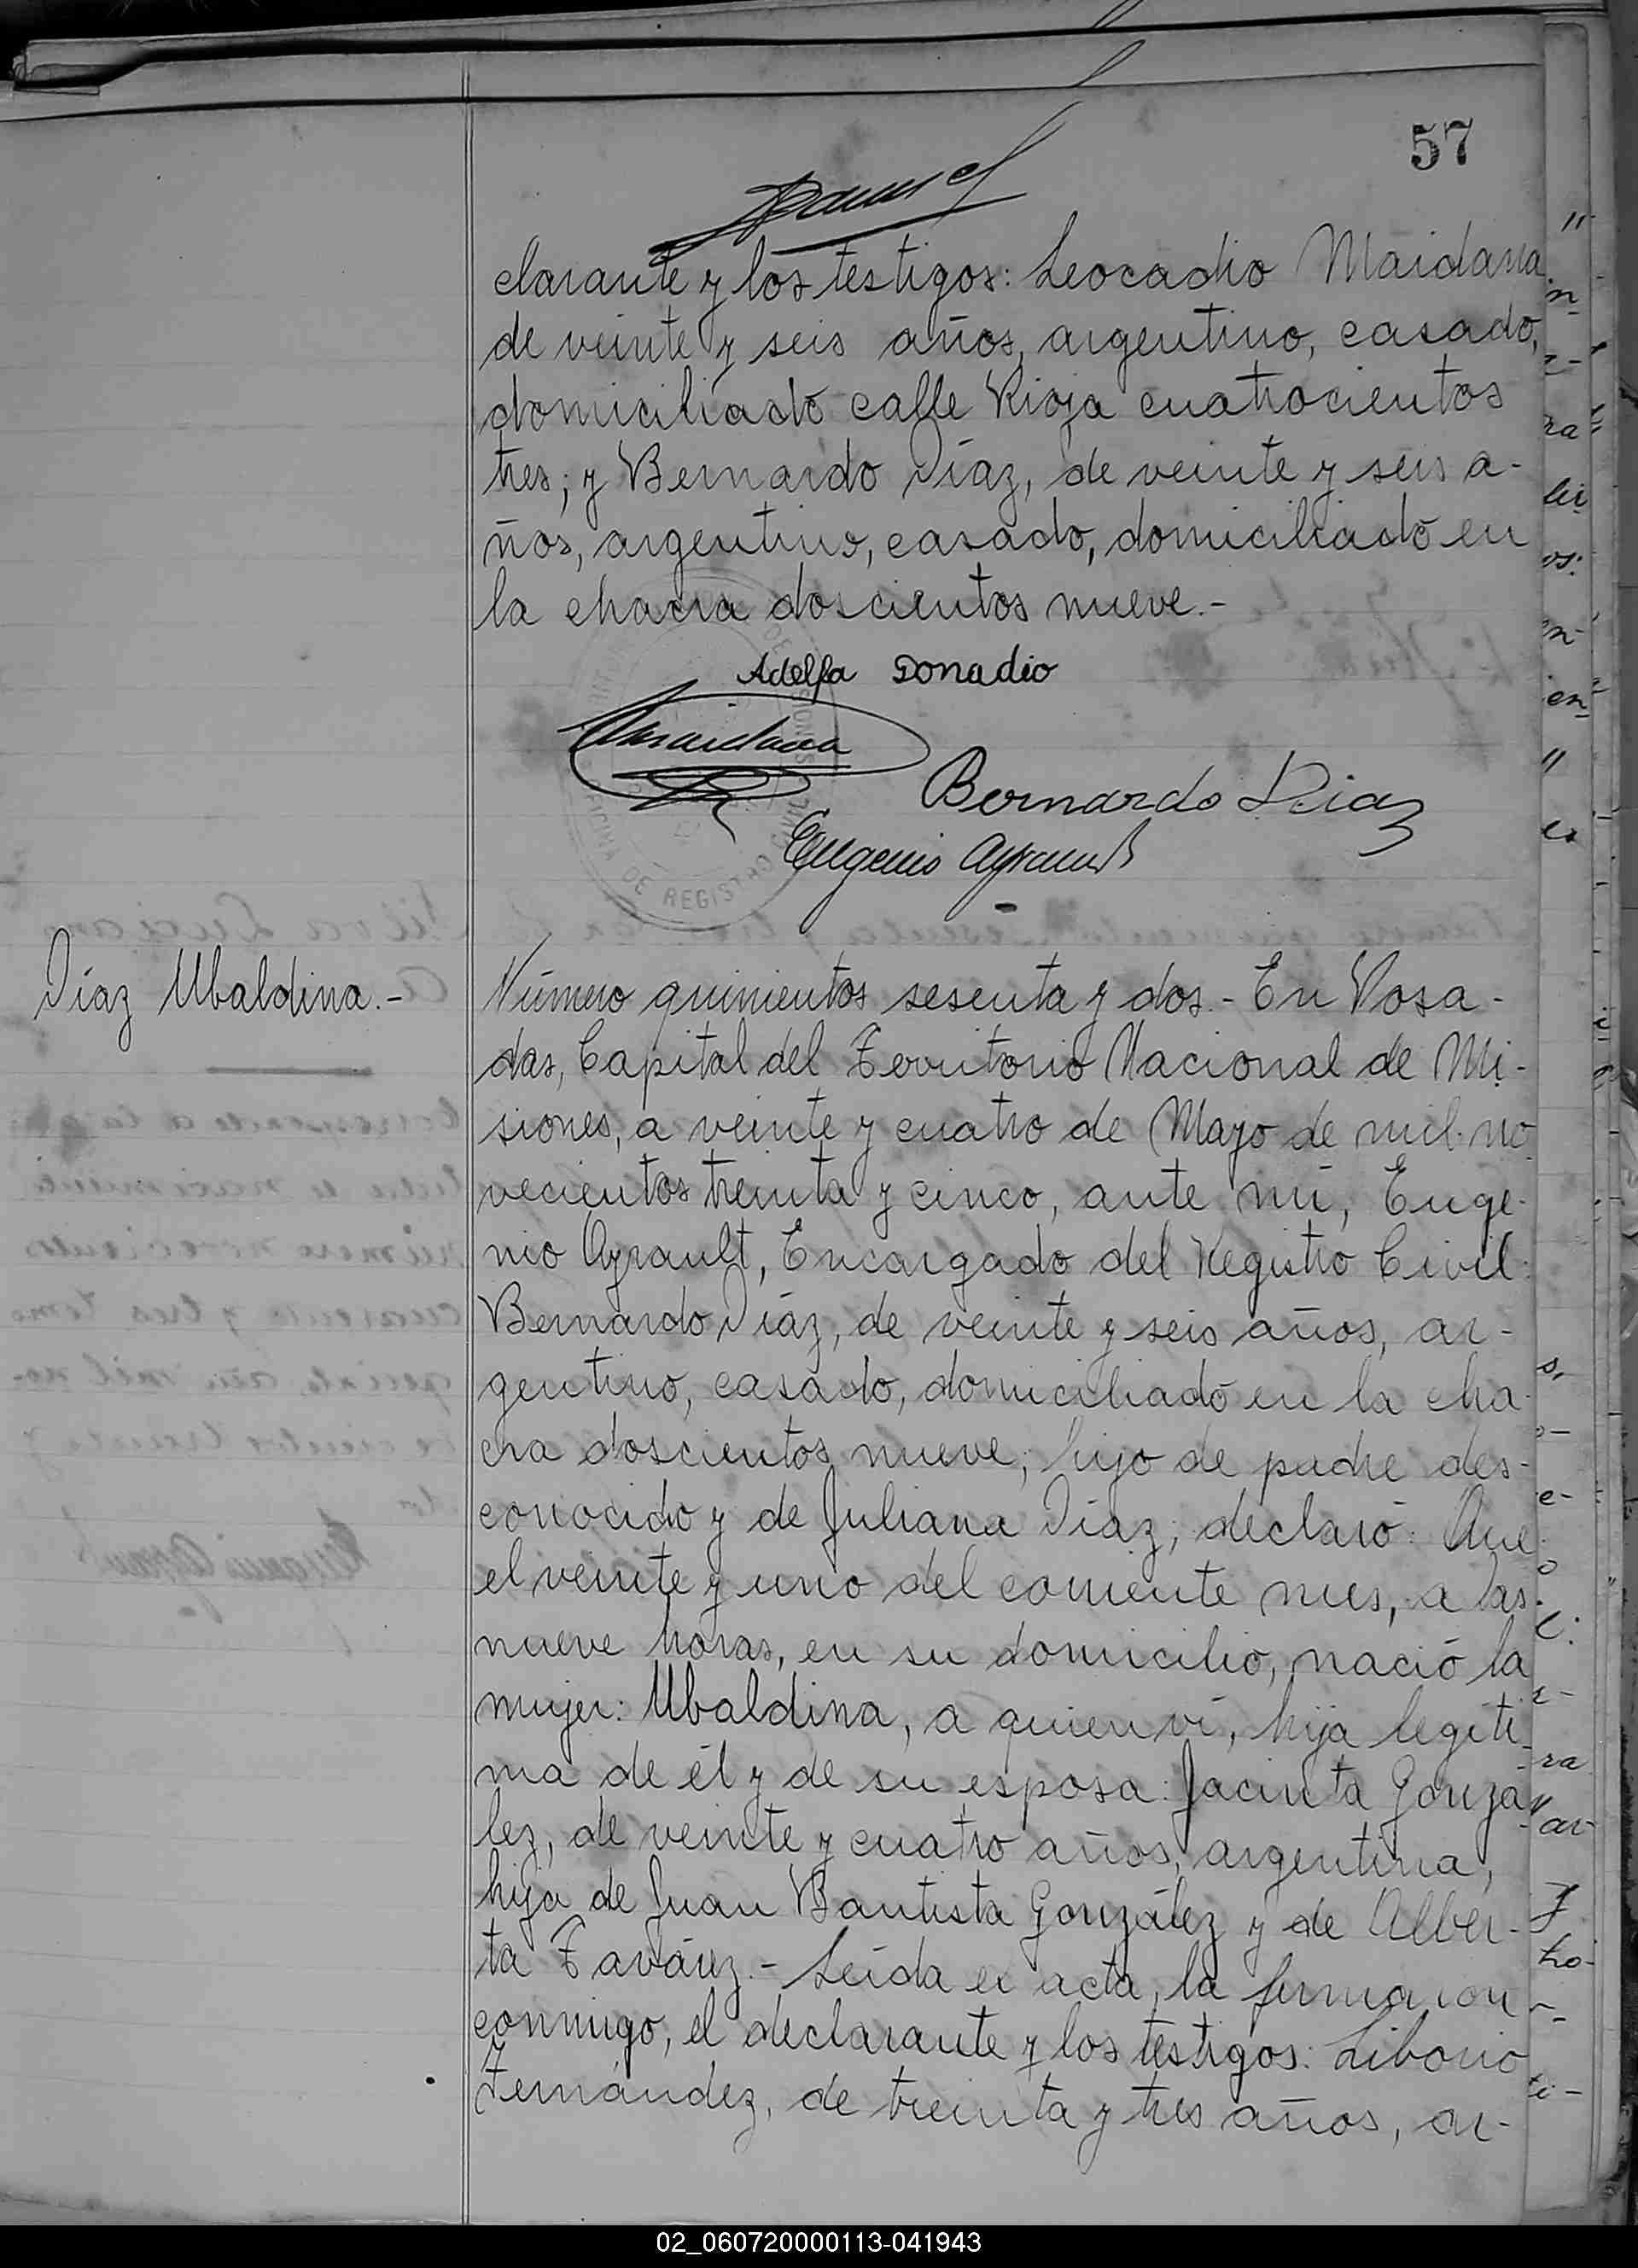 57
clarante y los testigos: Leocadio Maidana
de veinte y seis años, argentino, casado,
domiciliado calle Rioja cuatrocientos
tres; y Bernardo Díaz, de veinte y seis a-
ños, argentino, casado, domiciliado en
la chacra doscientos nueve.-
Adelfa Donadio
Maidana
Bernardo Diaz
Eugenio Ayrault
Díaz Ubaldina.-
Número quinientos sesenta y dos.- En Posa-
das, Capital del Territorio Nacional de Mi-
siones, a veinte y cuatro de Mayo de mil no
vecientos treinta y cinco, ante mí, Euge-
nio Ayrault, Encargado del Registro Civil:
Bernardo Díaz, de veinte y seis años, ar-
gentino, casado, domiciliado en la cha-
cra doscientos nueve; hijo de padre des-
conocido y de Juliana Díaz; declaró: Que
el veinte y uno del corriente mes, a las
nueve horas, en su domicilio, nació la
mujer: Ubaldina, a quien ví, hija legíti-
ma de él y de su esposa: Jacinta Gonzá
lez, de veinte y cuatro años, argentina,
hija de Juan Bautista González y de Alber-
ta Taváez.- Leída el acta, la firmaron
conmigo, el declarante y los testigos: Liborio
Fernández, de treinta y tres años, ar-
02_060720000113-041943